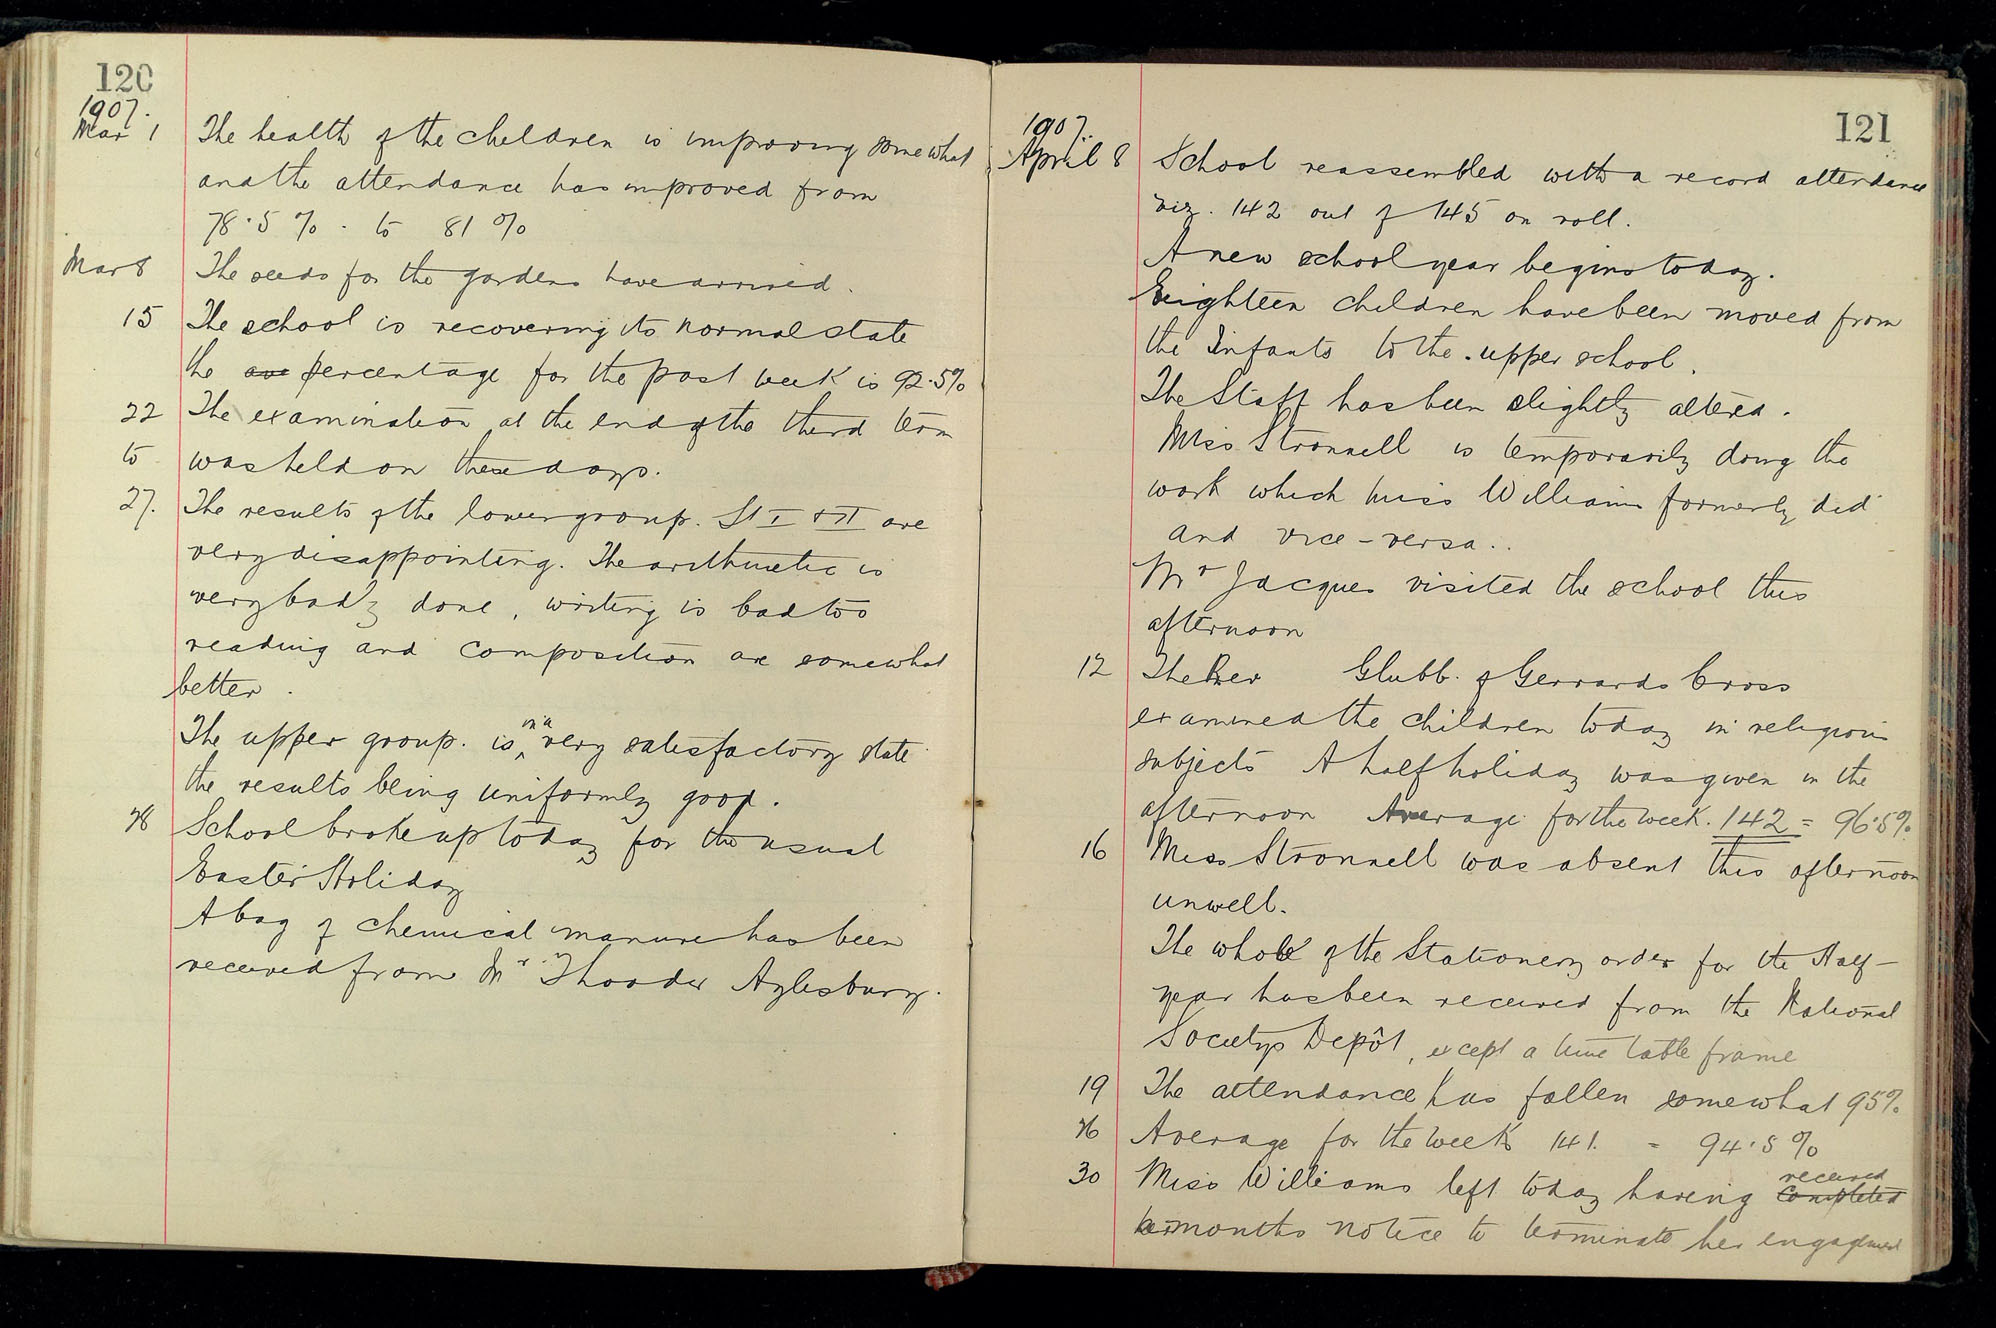 120
1907.
Mar 1 The health of the children is improving somewhat
and the attendance has improved from
78.5 % . to 81 %
Mar 8 The seeds for the gardens have arrived.
15 The school is recovering its normal state
the ave percentage for the past week is 92.5%
22 The examination at the end of the third term
to was held on these days.
27. The results of the lower group. St I & II are
very disappointing. The arithmetic is
very badly done, writing is bad too
reading and composition are somewhat
better.
The upper group. is in a very satisfactory state
the results being uniformly good.
28 School broke up today for the usual
Easter Holiday
A bag of chemical manure has been
received from Mr Aylesbury.
121
1907.
April 8 School reassembled with a record attendance
viz. 142 out of 145 on roll.
A new school year begins today.
Eighteen children have been moved from
the Infants to the upper school.
The Staff has been slightly altered.
Miss Stronnell is temporarily doing the
work which Miss Williams formerly did
and vice-versa..
Mr Jacques visited the school this
afternoon
12 The Rev Glubb. of Gerrards Cross
examined the children today in religious
subjects A half holiday was given in the
afternoon Average for the week. 142 = 96.5%
16 Miss Stronnell was absent this afternoon
unwell.
The whole of the Stationery order for the Half-
year has been received from the National
Societys Depôt, except a time table frame
19 The attendance has fallen somewhat 95%
26 Average for the week 141. = 94.5 %
30 Miss Williams left today having completed received
months notice to terminate her engagement